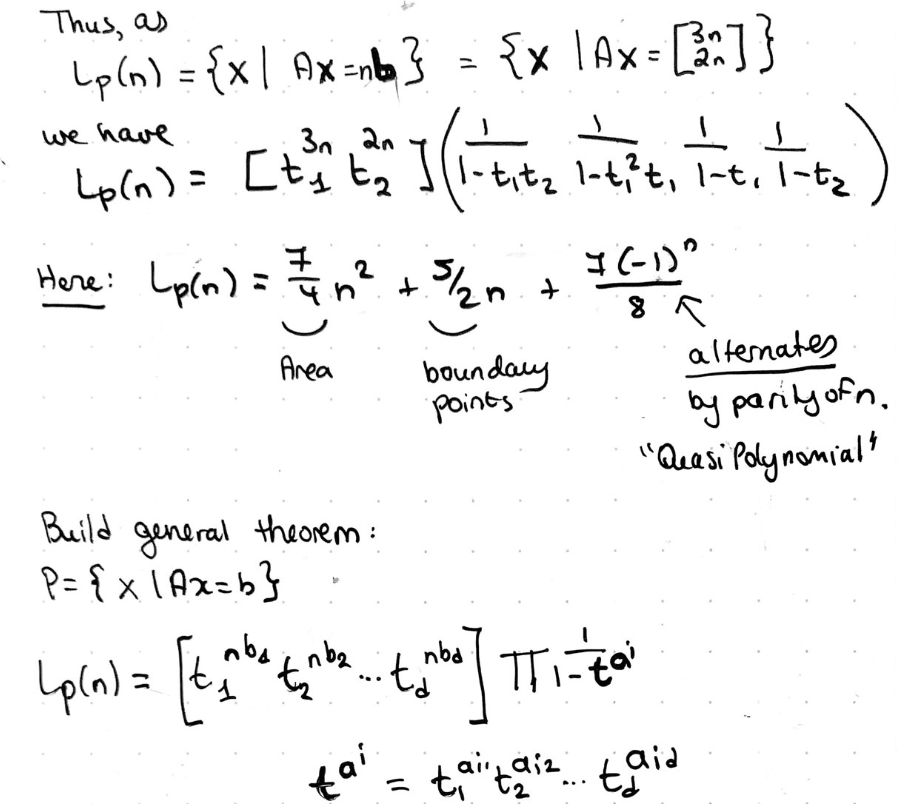 Thus, as
Lp(n) = {x | Ax = nb} = {x | Ax = [3n 2n]}
we have
Lp(n) = [t₁³ⁿ t₂²ⁿ] (1/(1-t₁t₂) 1/(1-t₁²t₁) 1/(1-t₁) 1/(1-t₂))
Here: Lp(n) = 7/4 n² + 5/2 n + 7(-1)ⁿ/8
Area
boundary
points
alternates
by parity of n.
"Quasi Polynomial"
Build general theorem:
P = {x | Ax = b}
Lp(n) = [t₁^{nb₁} t₂^{nb₂} ... t_d^{nb_d}] ∏ 1/(1-t^{a^i})
t^{a^i} = t₁^{a_{i1}} t₂^{a_{i2}} ... t_d^{a_{id}}